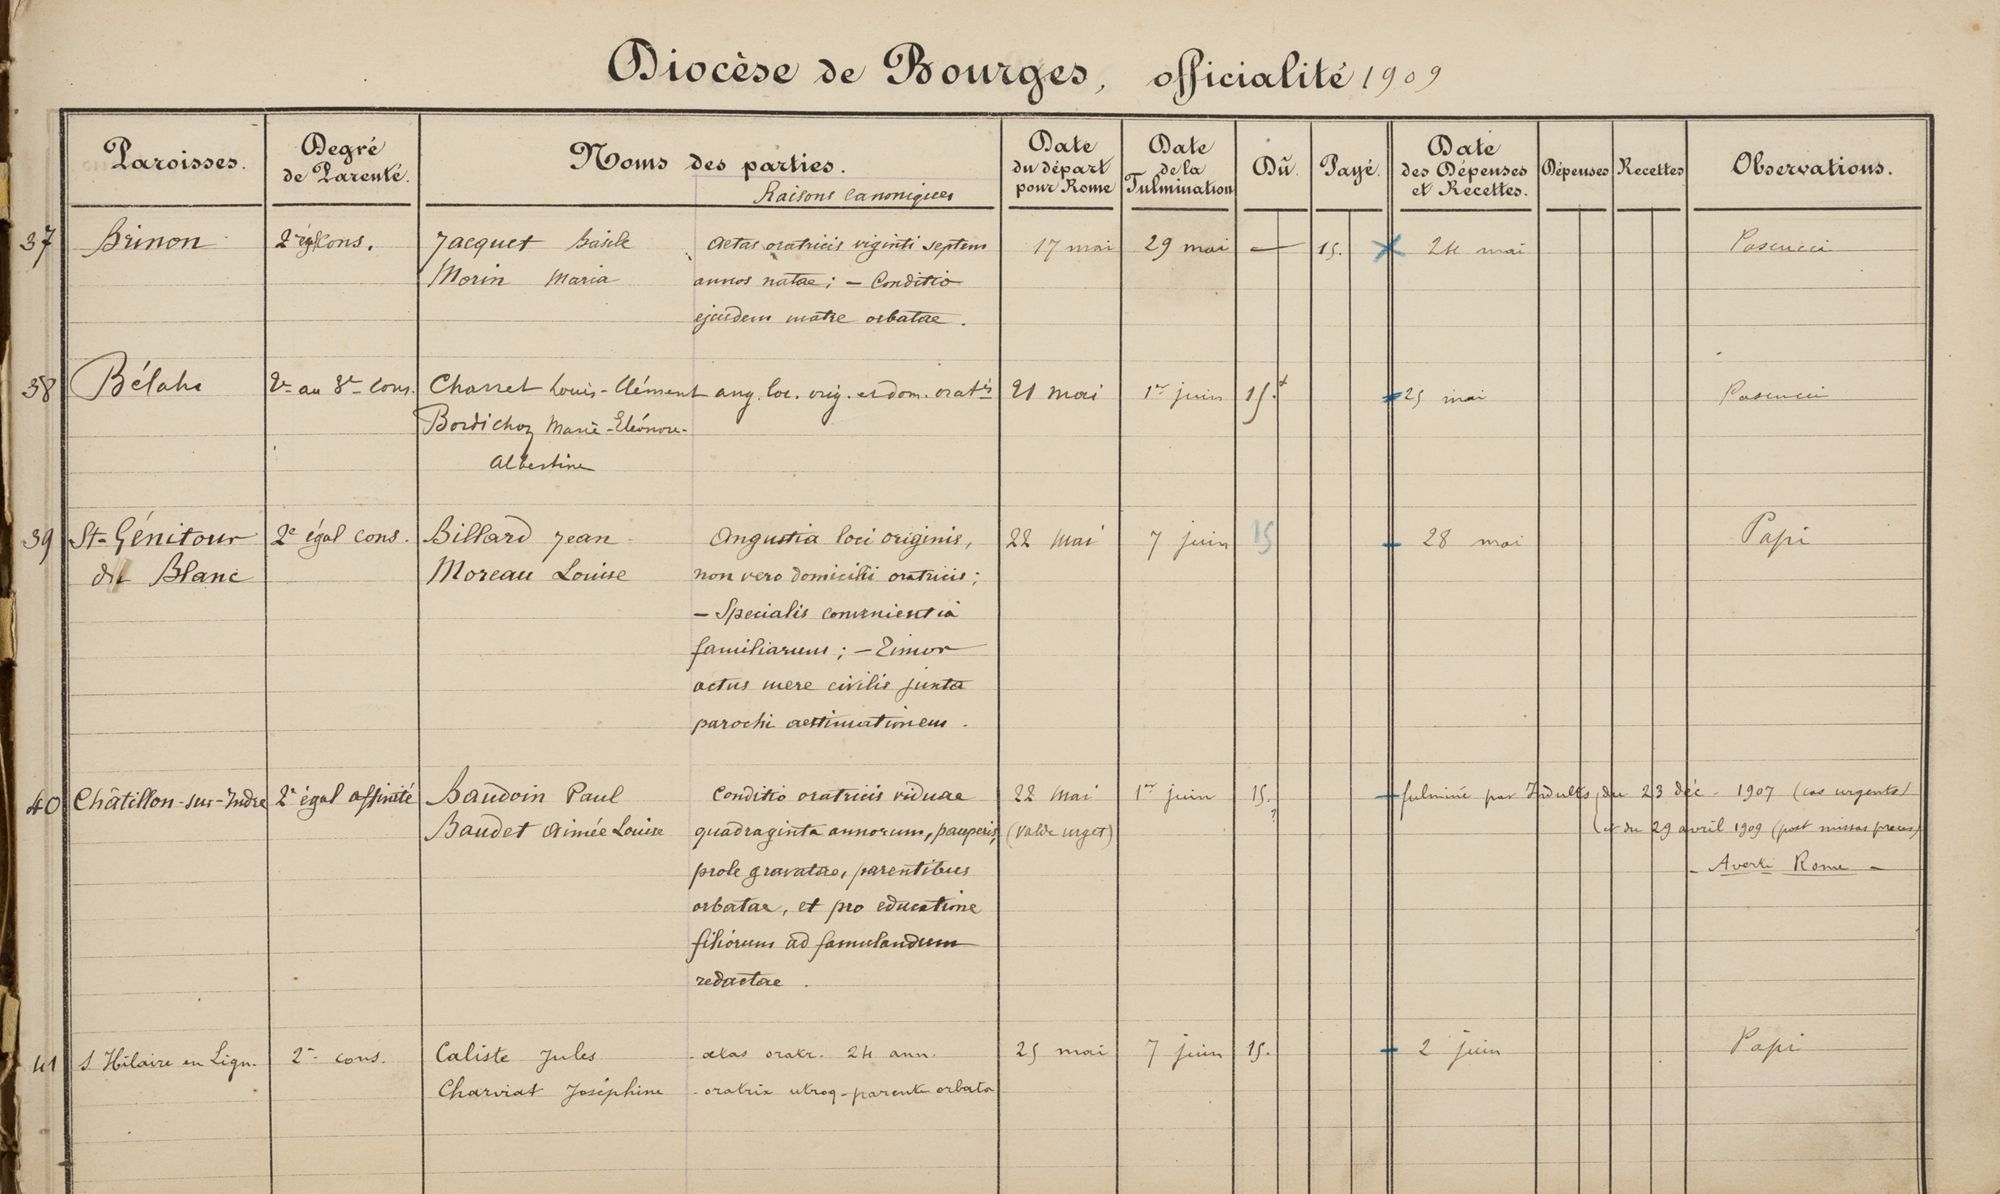 Diocèse de Bourges, officialité 1909
Paroisses. Degré de Parenté. Noms des parties. Raisons canoniques Date du départ pour Rome Date de la Fulmination Dû. Payé. Date des Dépenses et Recettes. Dépenses Recettes Observations.
37 Brinon 2e égal cons. Jacquet Basile Aetas oratricis viginti septem 17 mai 29 mai — 15. 24 mai Pascucci
Morin Maria annos natae; — Conditio
ejusdem matre orbatae.
38 2e au 3e cons. Charret Louis-Clément ang. loc. orig. et dom. oratis 21 mai 1er juin 15. 25 mai Pascucci
Marie-Eléonore-
Albertine
39 St-Génitour 2e égal cons. Billard Jean Angustia loci originis, 22 mai 7 juin 15 28 mai Papi
du Blanc Moreau Louise non vero domicilii oratricis;
— Specialis convenientia
familiarum; — Timor
actus mere civilis juxta
parochi aestimationem.
40 Châtillon-sur-Indre 2e égal affinité Baudoin Paul Conditio oratricis viduae 22 mai 1er juin 15. fulminé par Indults du 23 déc. 1907 (cas urgents)
Baudet Aimée Louise quadraginta annorum, pauperis, (valde urget) ? et du 29 avril 1909 (post missas preces)
prole gravatae, parentibus — Averti Rome —
orbatae, et pro educatione
filiorum ad famulandum
redactae.
41 S Hilaire en Lign. 2e cons. Caliste Jules - aetas oratr. 24 ann. 25 mai 7 juin 15. 2 juin Papi
Charviat Joséphine - oratrix utroq-parente orbata